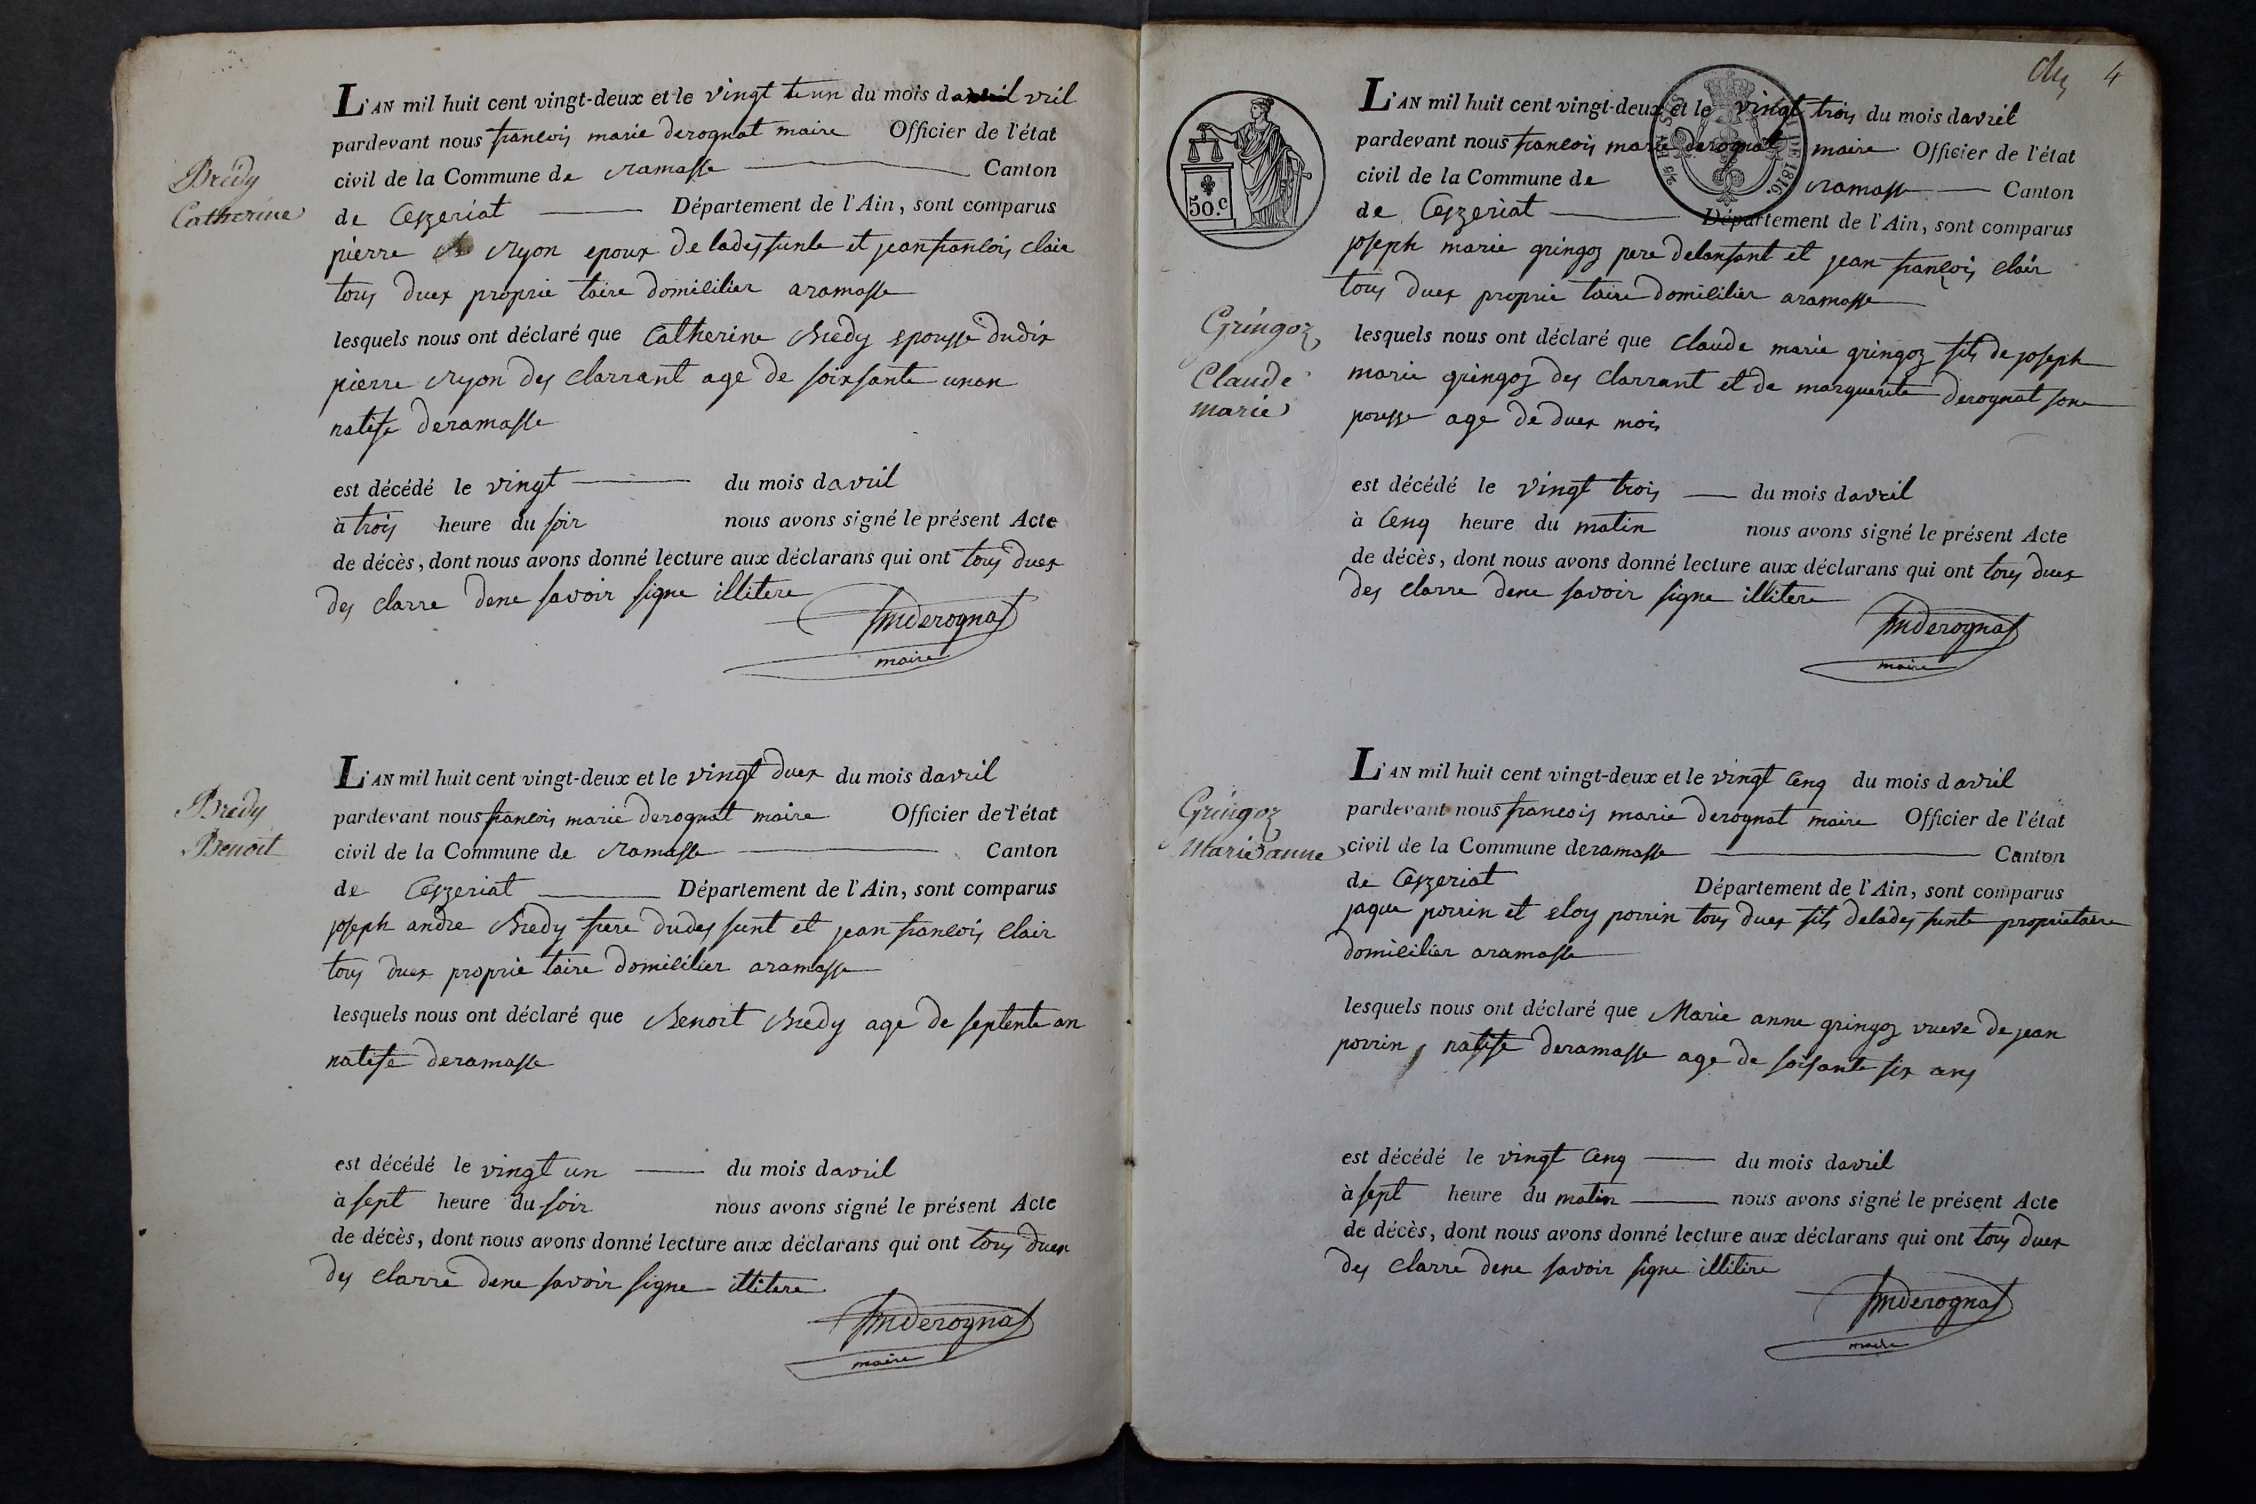 Bredy
Catherine
L'AN mil huit cent vingt-deux et le vingt te un du mois d vril
pardevant nous francois marie derognat maire Officier de l'état
civil de la Commune de ramasse Canton
de Ceyzeriat Département de l'Ain, sont comparus
pierre ryon epoux de ladesfunte et jean francois clair
tous duex proprie taire domicilier aramasse
lesquels nous ont déclaré que Catherine Bredy epousse dudix
pierre ryon des clarrant age de soixsante unan
natife deramasse
est décédé le vingt du mois davril
à trois heure du soir nous avons signé le présent Acte
de décès, dont nous avons donné lecture aux déclarans qui ont tous duex
des clarre dene savoir signe illitere
fmderognat
maire
Bredy
Benoit
L'AN mil huit cent vingt-deux et le vingt duex du mois davril
pardevant nous francois marie derognat maire Officier de l'état
civil de la Commune de ramasse Canton
de Ceyzeriat Département de l'Ain, sont comparus
joseph andre Bredy frere dudes funt et jean francois clair
tous duex proprie taire domicilier aramasse
lesquels nous ont déclaré que Benoit Bredy age de septente an
natife deramasse
est décédé le vingt un du mois davril
à sept heure du soir nous avons signé le présent Acte
de décès, dont nous avons donné lecture aux déclarans qui ont tous duex
des clarre dene savoir signe illitere
fmderognat
maire
4
50.c
DE 1816.
L'AN mil huit cent vingt-deux et le vingt trois du mois davril
pardevant nous francois marie derognat maire Officier de l'état
civil de la Commune de ramasse Canton
de Ceyzeriat Département de l'Ain, sont comparus
joseph marie gringoz pere delanfant et jean françois clair
tous duex proprie taire domicilier aramasse
Gringoz
Claude
marie
lesquels nous ont déclaré que claude marie gringoz fils de joseph
marie gringoz des clarrant et de marguerite derognat sone
pousse age de duex mois
est décédé le vingt trois du mois davril
à cenq heure du matin nous avons signé le présent Acte
de décès, dont nous avons donné lecture aux déclarans qui ont tous duex
des clarre dene savoir signe illitere
fmderognat
maire
Gringoz
Marie anne
L'AN mil huit cent vingt-deux et le vingt cenq du mois davril
pardevant nous francois marie derognat maire Officier de l'état
civil de la Commune deramasse Canton
de Ceyzeriat Département de l'Ain, sont comparus
jaque porrin et eloy porrin tous duex fils delades funte proprietaire
domicilier aramasse
lesquels nous ont déclaré que Marie anne gringoz vueve de jean
porrin, natife deramasse age de soisante six ans
est décédé le vingt cenq du mois davril
à sept heure du matin nous avons signé le présent Acte
de décès, dont nous avons donné lecture aux déclarans qui ont tous duex
des clarre dene savoir signe illitire
fmderognat
maire